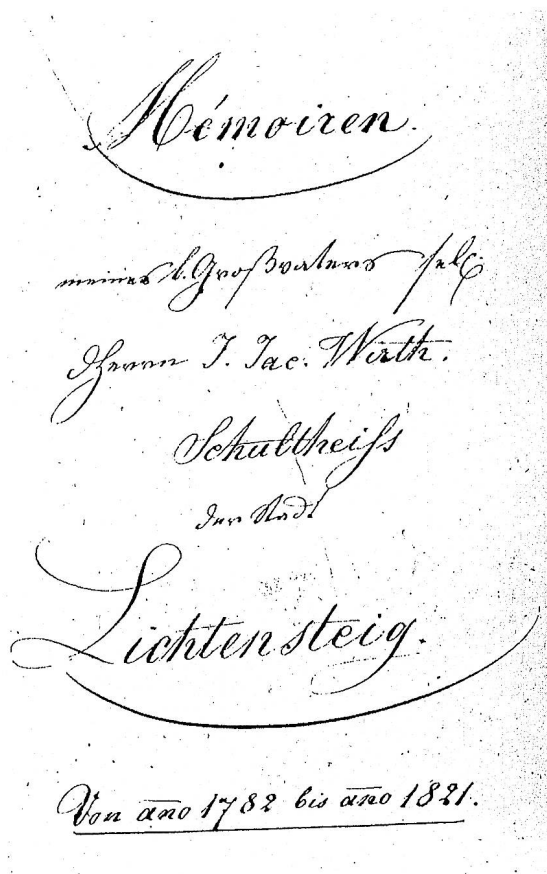 Mémoiren.
meines l. Großvaters sel.
Herrn J. Jac. Wirth.
Schultheiſs
der Stadt
Lichtensteig.
Von año 1782 bis año 1821.